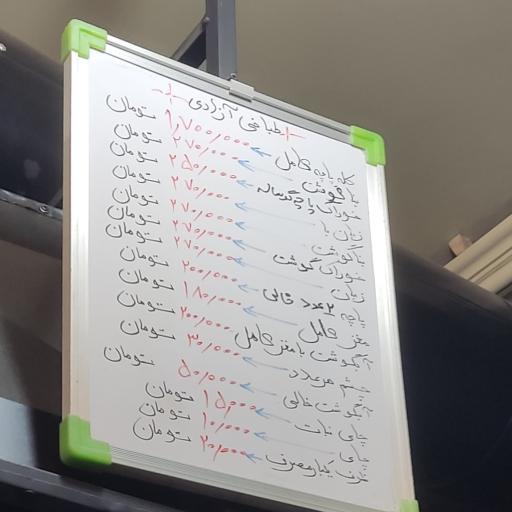 طباخی آزادی
کله پاچه کامل ۱,۷۰۰,۰۰۰ تومان
بناگوش ۲۷۰,۰۰۰ تومان
خوراک پاچه گوساله ۲۵۰,۰۰۰ تومان
زبان ۲۷۰,۰۰۰ تومان
بناگوش ۲۷۰,۰۰۰ تومان
خوراک گوشت ۲۷۰,۰۰۰ تومان
زبان ۲۷۰,۰۰۰ تومان
پاچه ۲ عدد قالی ۲۰۰,۰۰۰ تومان
مغز کامل ۱۸۰,۰۰۰ تومان
آبگوشت با مغز کامل ۲۰۰,۰۰۰ تومان
چشم هر عدد ۳۰,۰۰۰ تومان
آبگوشت خالی ۵۰,۰۰۰ تومان
چای نبات ۱۵,۰۰۰ تومان
چای ۱۰,۰۰۰ تومان
ظرف یکبار مصرف ۲۰,۰۰۰ تومان